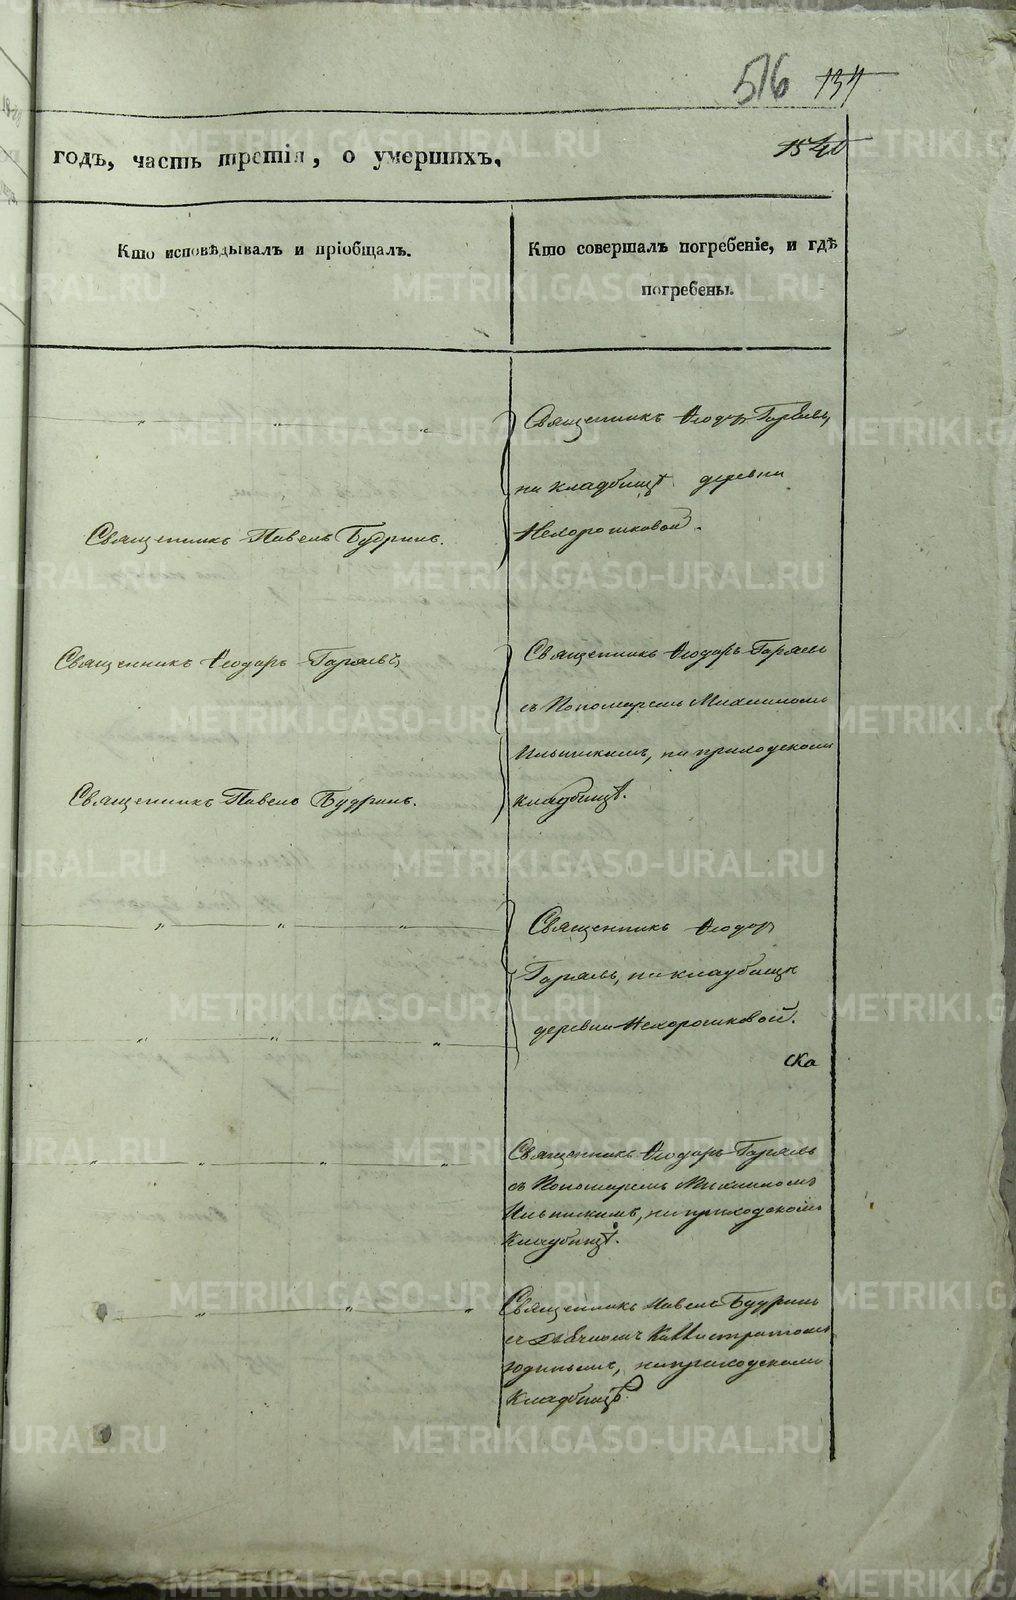 516 134
1540
годъ, часть третія, о умершихъ.
Кто исповѣдывалъ и пріобщалъ.
Кто совершалъ погребеніе, и гдѣ
погребены.
Священникъ Ѳеодоръ Гаряевъ,
на кладбищѣ деревни
Нехорошковой.
Священникъ Павелъ Будринъ.
Священникъ Ѳеодоръ Гаряевъ
Священникъ Ѳеодоръ Гаряевъ
съ Пономаремъ
Ильинскимъ, на приходскомъ
кладбищѣ.
Священникъ Павелъ Будринъ.
Священникъ Ѳеодоръ
Гаряевъ, на кладбищѣ
деревни Нехорошковой.
ска
Священникъ Ѳеодоръ Гаряевъ
съ Пономаремъ
Ильинскимъ, на приходскомъ
Кладбищѣ.
Священникъ Павелъ Будринъ
съ Дьячкомъ Каллистратомъ
Юдинымъ, на приходскомъ
Кладбищѣ.
METRIKI.GASO-URAL.RU